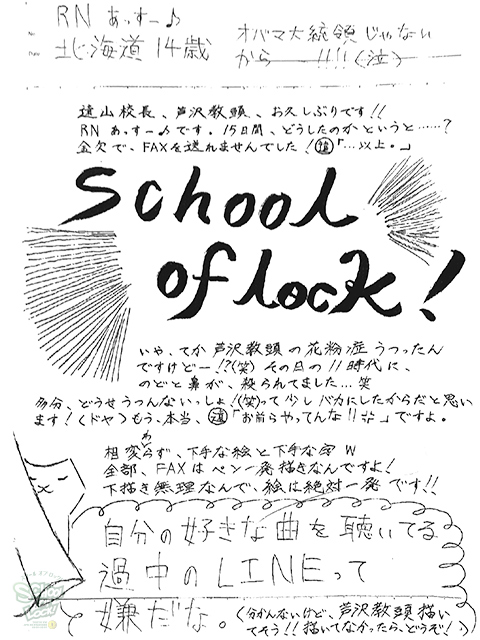 RN あっすー♪
北海道 14歳
オバマ大統領じゃない
から——!!!!(泣)
遠山校長、芦沢教頭、お久しぶりです!!
RN あっすー♪です。15日間、どうしたのかというと……?
金欠で、FAXを送れませんでした!㊟「…以上。」
School
of lock!
いや、てか芦沢教頭の花粉症うつったん
ですけどー!?(笑) その日の11時代に、
のどと鼻が、殺られてました…笑
多分、どうせうつんないっしょ!(笑)って少しバカにしたからだと思い
ます!(ドヤ)もう、本当、「お前らやってんな!!」ですよ。
相変わらず、下手な絵と下手な字w
全部、FAXはペン一発描きなんですよ!
下描き無理なんで、絵は絶対一発です!!
自分の好きな曲を聴いてる
過中のLINEって
嫌だな。
(分かんないけど、芦沢教頭描い
てそう!!描いてなかったら、どうぞ!)